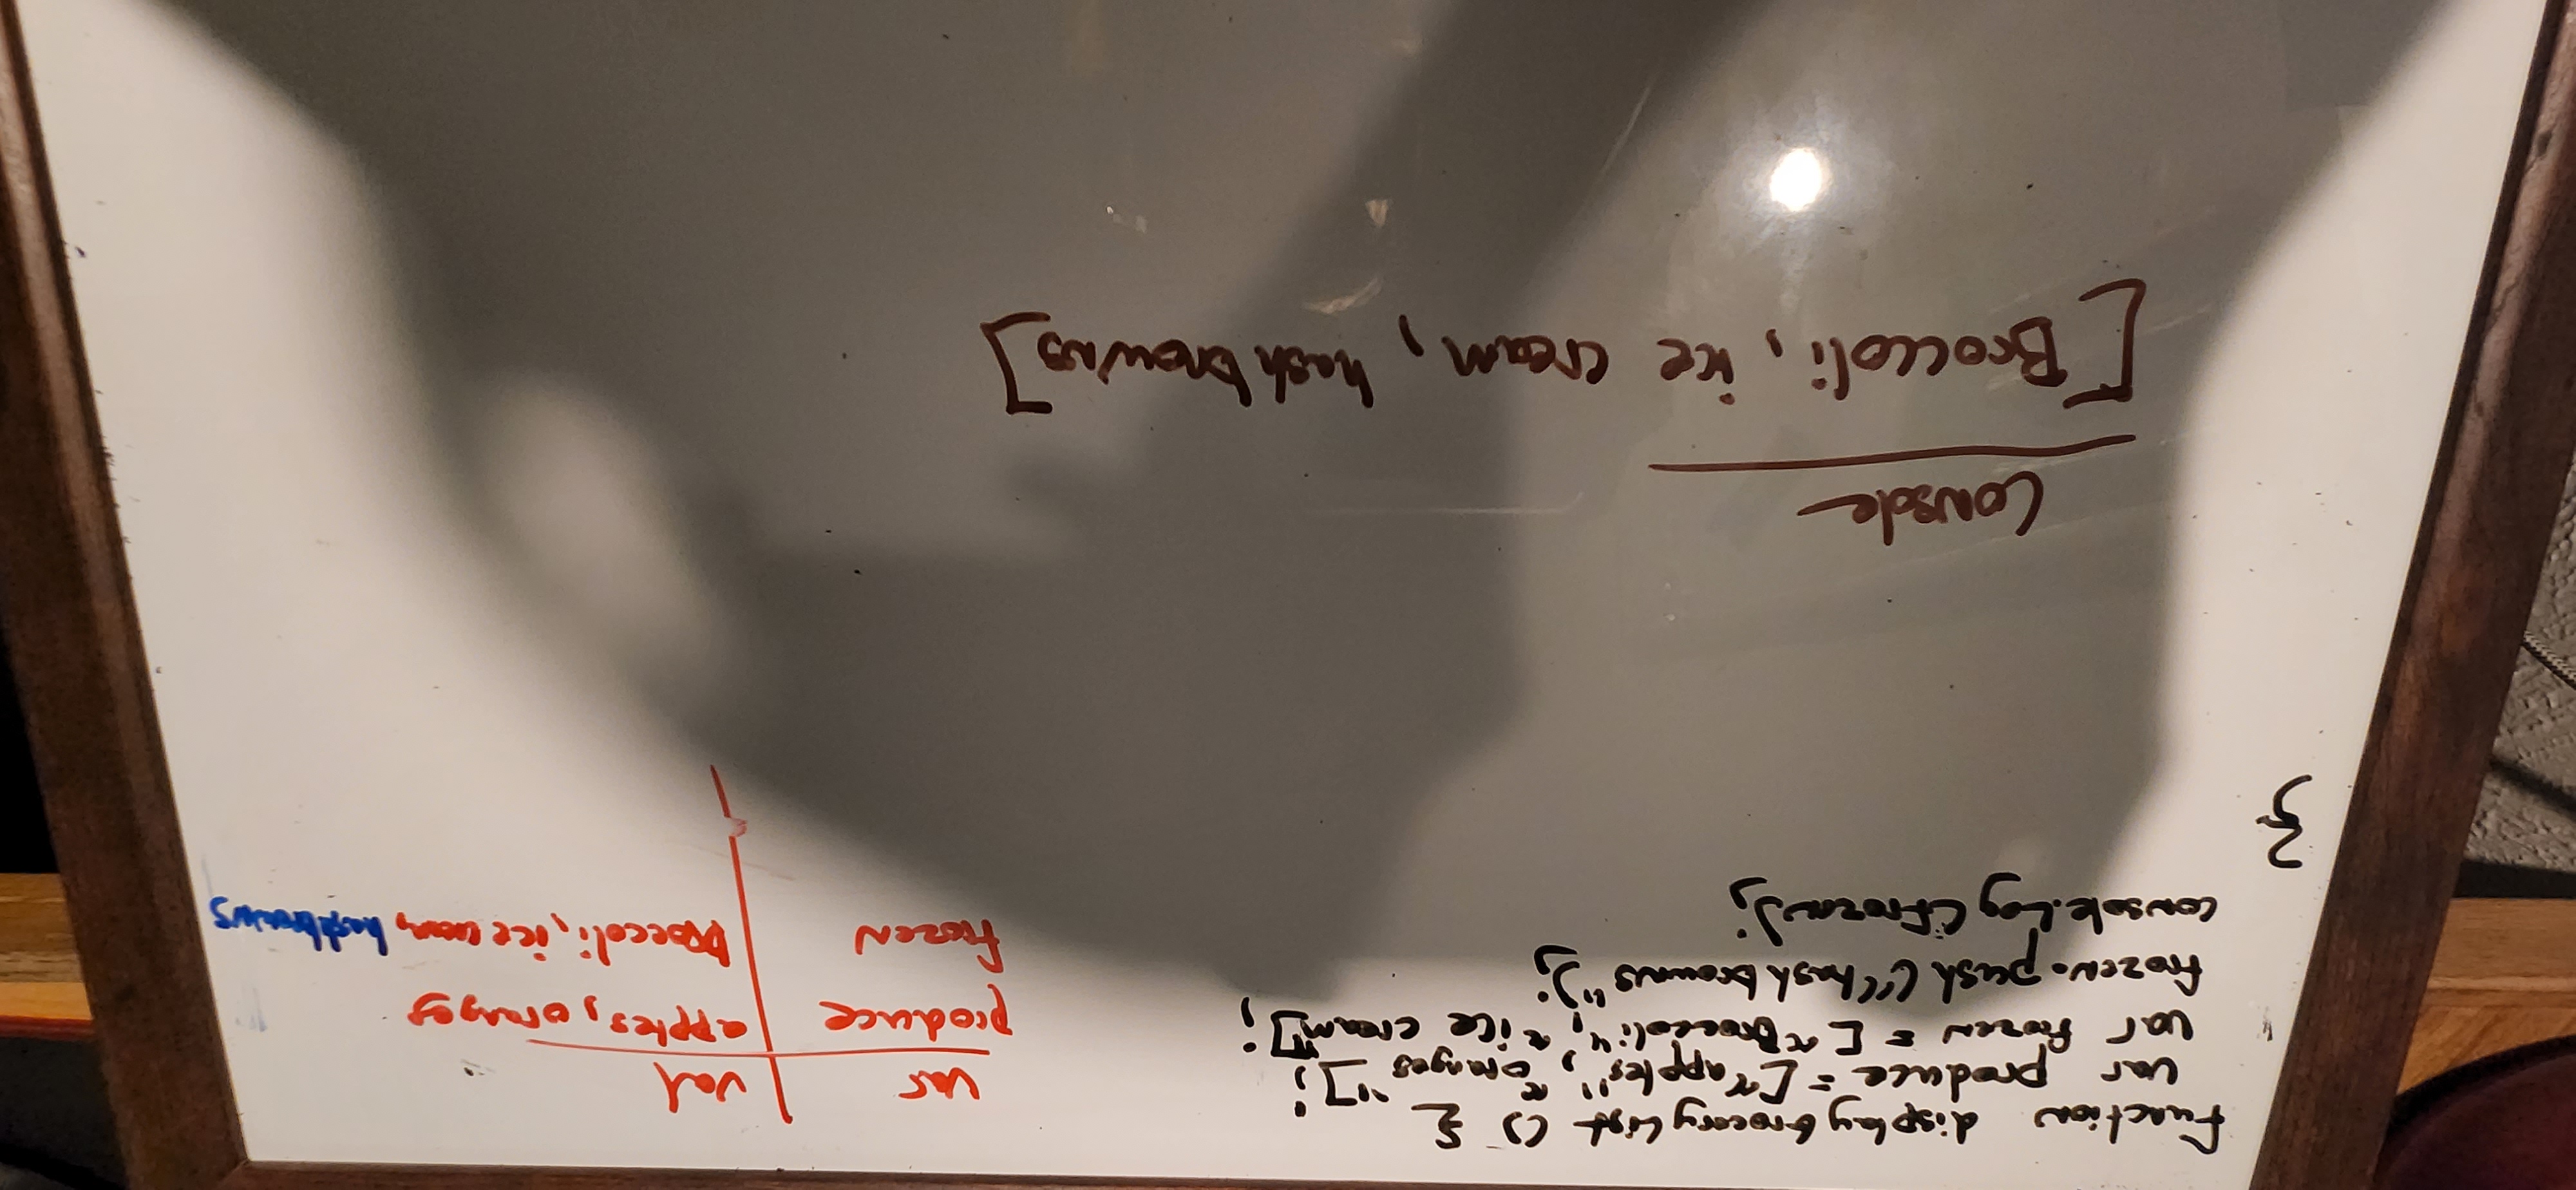 function displayGroceryList () {
var produce = ["apples", "oranges"];
var frozen = ["Broccoli", "ice cream"];
frozen.push ("hashbrowns");
console.Log (frozen);
}
var val
produce apples, oranges
frozen broccoli, ice cream, hashbrowns
Console
[Broccoli, ice cream, hashbrowns]